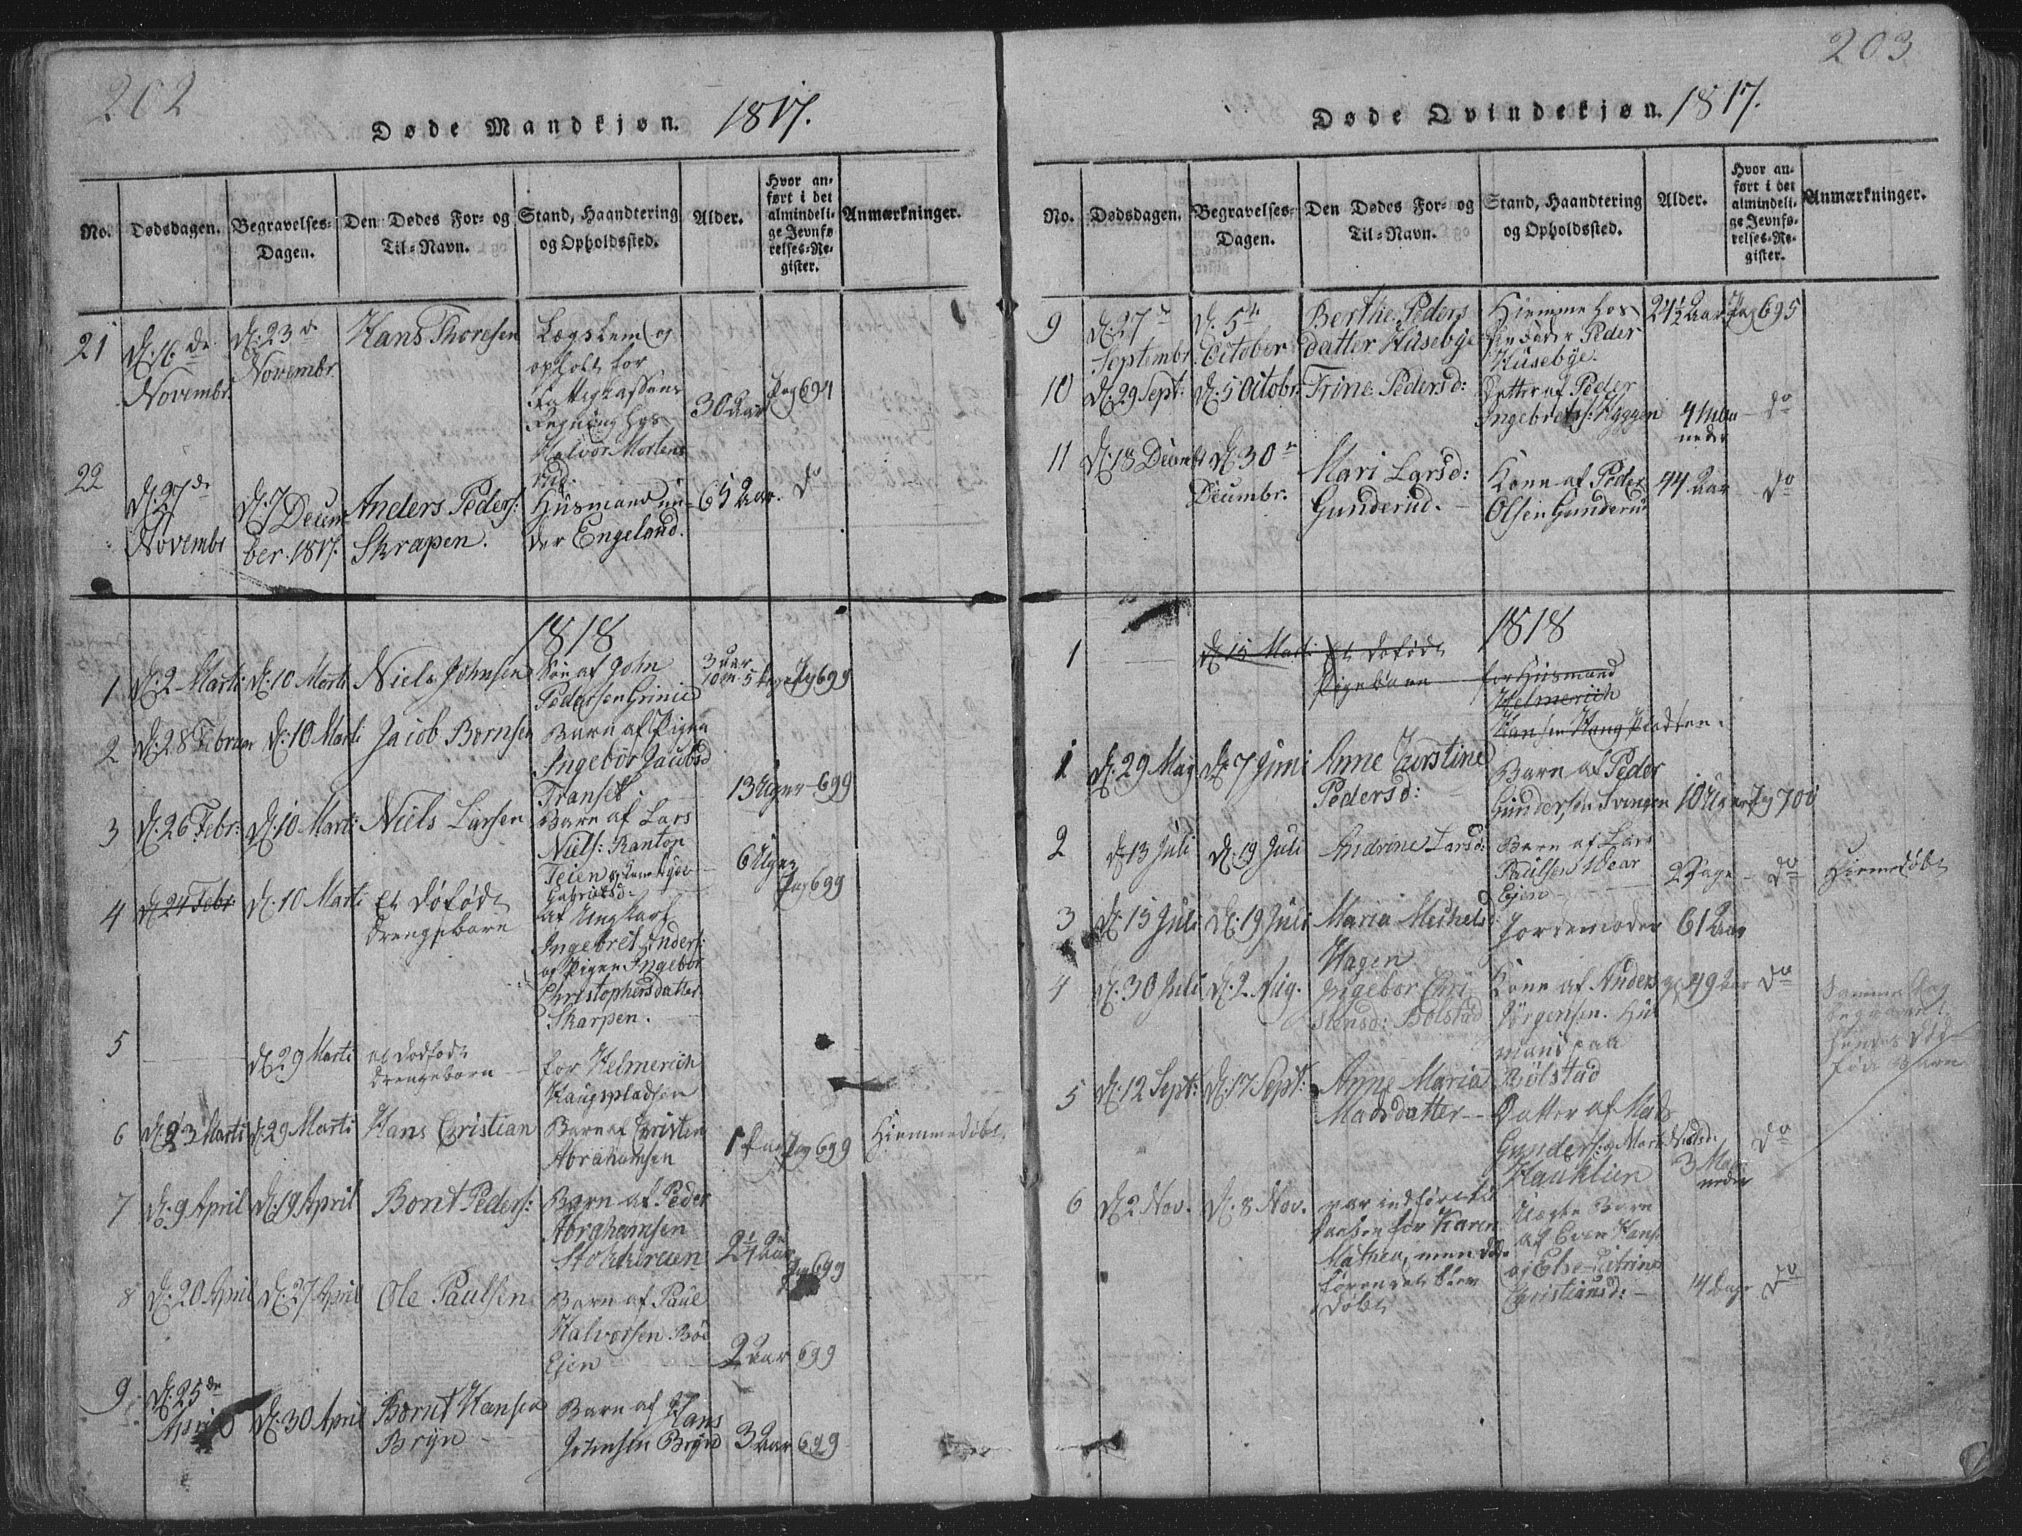 202
Døde Mandkjøn. 1817.
No. Dødsdagen. Begravelses-Dagen. Den Dødes For- og Til-Navn. Stand, Haandtering og Opholdssted. Alder. Hvor anført i det almindelige Jevnførelses-Register. Anmærkninger.
21 D. 16de Novembr. D. 23d Novembr. Hans Thoresen Lægslem og opholt for Fattigkassens Regning hos Halvor Mortens 30 Aar Pag 694
22 D. 27de Novembr D. 7 Decembe r. 1817. Anders Peders: Skrapen. Husmand under Engeland. 65 Aar. do
1818
1 D. 2 Marti D. 10 Marti Niels Johnsen Søn af John Pedersen Grinie 3 aar 10 m. 5 dage Pg 699
2 D. 28 Februar D. 10 Marti Jacob Bernsen Barn af Pigen Ingebor Jacobsd Transet 13 Uger 699
3 D. 26 Febr: D. 10 Marti Niels Larsen Barn af Lars Niels: Kantop Teien 6 Uger Pag 699
4 D. 24 Febr: D. 10 Marti et Døfødt drengebarn af Ungkarl Ingebret Anders: og Pigen Ingebor Christophersdatter Skarpen.
5 D. 29 Marti et dødfødt drengebarn for Helmerich Haugspladsen
6 D. 23 Marti D. 29 Marti Hans Cristian Barn af Cristen Abrahamsen 1 Pag 699 Hiemmedøbt
7 D. 9 April D. 19 April Bernt Peders: Barn af Peder Abrahamsen Stokkerøen 2 1/4 Aar Pag 699
8 D. 20 April D. 27 April Ole Paulsen Barn af Paul Halvorsen Bøe Ejen 2 Aar 699
9 D. 25de April D. 30 April Bernt Hansen Bryn Barn af Hans Johnsen Bryn 3 Aar 699
203
Døde Qvindekjøn. 1817.
No. Dødsdagen. Begravelses-Dagen. Den Dødes For- og Til-Navn. Stand, Haandtering og Opholdssted. Alder. Hvor anført i det almindelige Jevnførelses-Register. Anmærkninger.
9 D. 27de Septembr D. 5te October Berthe Pedersdatter Husebye Hiemme hos sin Fader Peder Husebye. 24 1/2 Aar Pag 695
10 D. 29 Sept: D. 5 Octobr. Trine Pedersd: Datter af Peder Ingebrets: Hyggen 4 Maaneder do
11 D. 18 Decembr D. 30te Decembr. Mari Larsd: Gunderud. Kone af Peder Olsen Gunderud 44 Aar do
1818
1 D. 15 Marti et døfødt Pigebarn for Husmand Helmerich Hansen Haugspladsen.
1 D. 29 May D. 7 Juni Anne Kirstine Pedersd: Barn af Peder Gundersen Svingen 10 Uger Pg 700
2 D. 13 Juli D. 19 Juli Larsd: Barn af Lars Paulsen Wear Ejen 2 Dage do Hiemmedøbt
3 D. 15 Juli D. 19 Juli Maria Michelsd: Hagen Jordemoder 61 Aar
4 D. 30 Juli D. 2 Aug. Ingebor Christensd: Bolstad Kone af Anders Jørgensen. Husmand paa Bølstad 49 Aar do Samme Dag begravet hendes Dødfødt Barn
5 D. 12 Sept: D. 17 Sept: Anne Maria Madsdatter Datter af Mads Gunders: og Mari Nielsd: Hauklien 3 Maaneder do
6 D. 2 Nov. D. 8 Nov. var indført til Daaben for Karen Mathea, men døde førend det blev Døbt Uægte Barn af Even Hans: og Else Catrine Christiansd: 14 Dage do